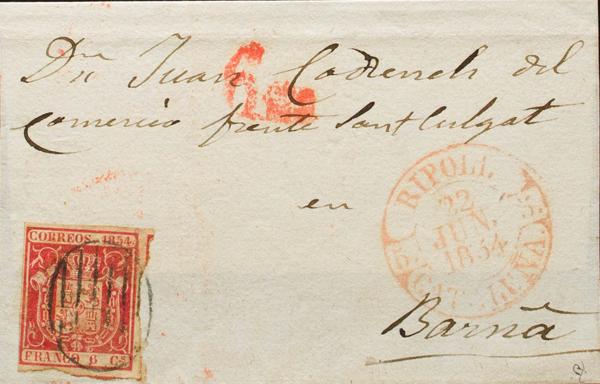 Dn Juan Codrench del
comercio frente Sant Culgat
en
Barña
RIPOLL
22
JUN.
1854
CATALUÑA
CORREOS 1854
FRANCO 6 Cs